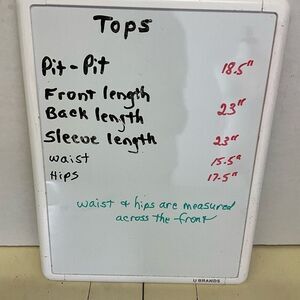 Tops
Pit-Pit 18.5"
Front length
Back length 23"
Sleeve length 23"
waist 15.5"
Hips 17.5"
waist & hips are measured
across the front
U BRANDS